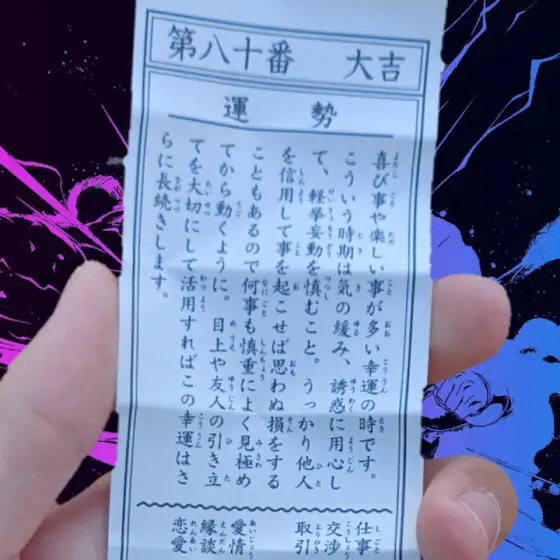 第八十番 大吉
運勢
喜び事や楽しい事が多い幸運の時です。
こういう時期は気の緩み、誘惑に用心し
て、軽挙妄動を慎むこと。うっかり他人
を信用して事を起こせば思わぬ損をする
こともあるので何事も慎重によく見極め
てから動くように。目上や友人の引き立
てを大切にして活用すればこの幸運はさ
らに長続きします。
仕事
交渉
取引
愛情
縁談
恋愛